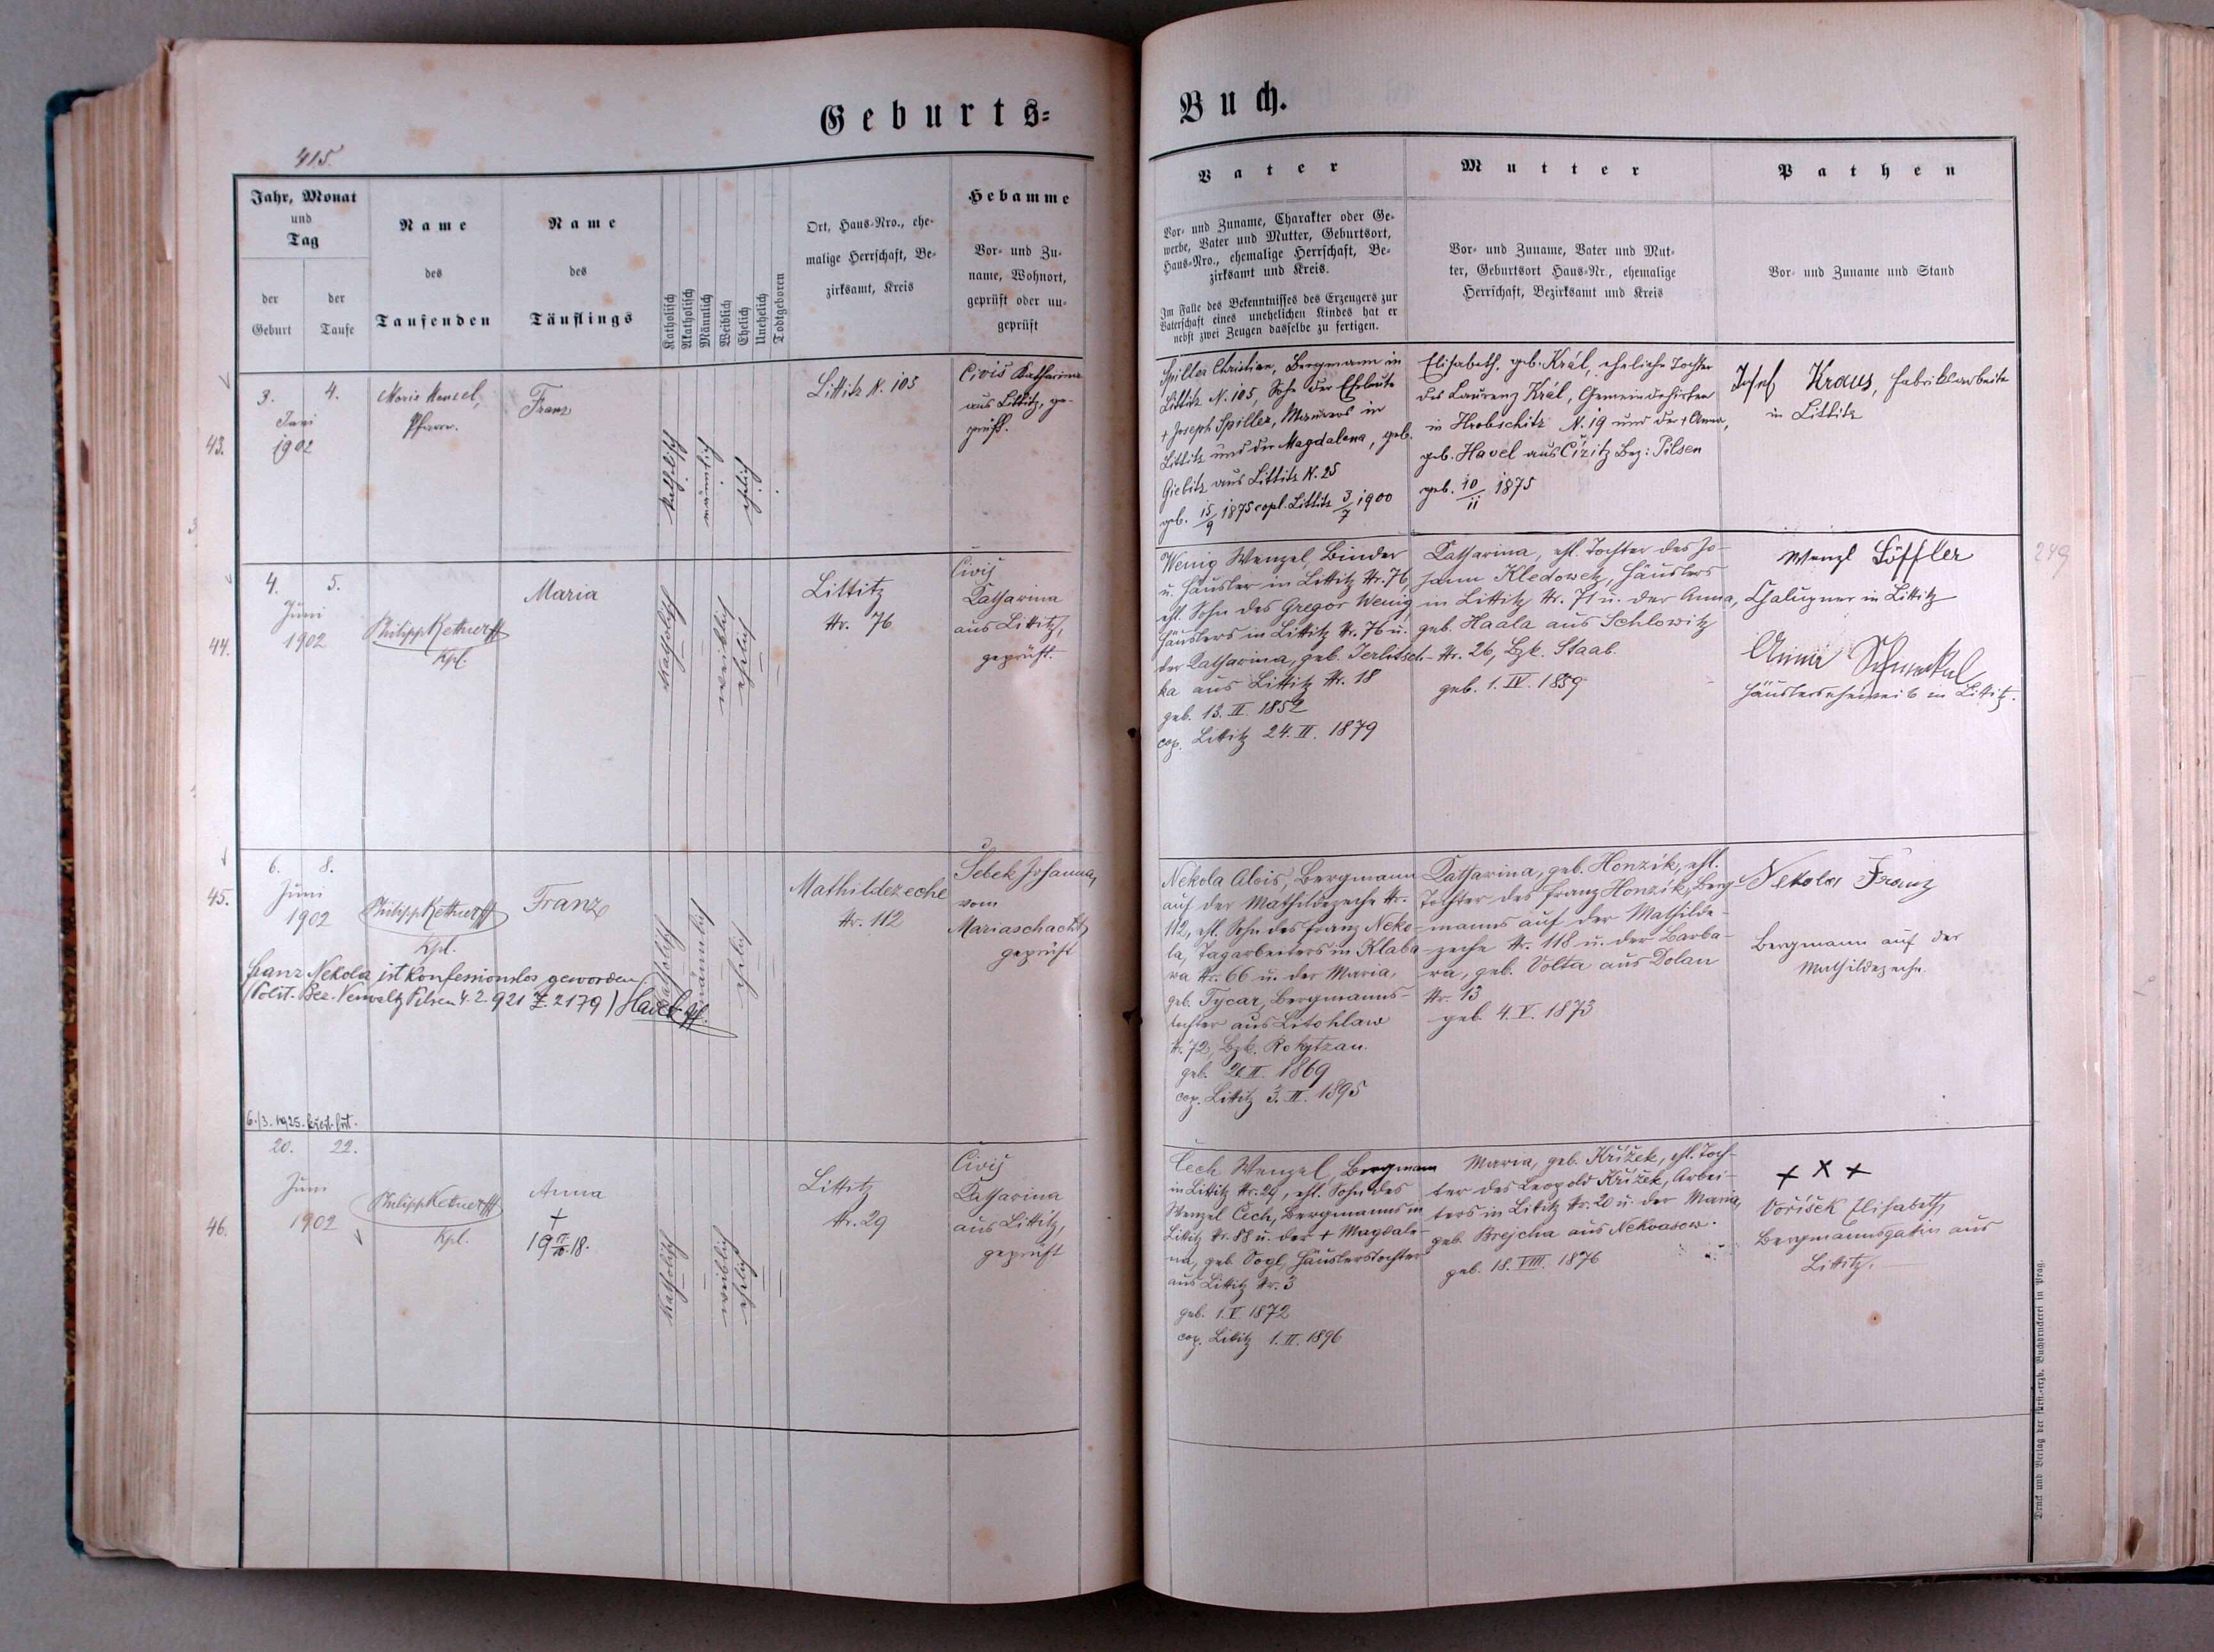 Geburts=
415.
Jahr, Monat
und
Tag
der
Geburt
der
Taufe
Name
des
Taufenden
Name
des
Täuflings
Katholisch
Akatholisch
Männlich
Weiblich
Ehelich
Unehelich
Todtgeboren
Ort, Haus=Nro., ehe=
malige Herrschaft, Be=
zirksamt, Kreis
Hebamme
Vor= und Zu=
name, Wohnort,
geprüft oder un=
geprüft
43.
3. 4.
Juni
1902
Pfarrer.
Franz
katholisch
männlich
ehelich
Littitz N. 105
Civis Katharina
aus Littitz, ge-
prüft.
44.
4. 5.
Juni
1902
Philipp Kettner
Kpl.
Maria
katholisch
weiblich
ehelich
Littitz
Nr. 76
Civiš
Katharina
aus Littitz,
geprüft.
45.
6. 8.
Juni
1902
Philipp Kettner
Kpl.
Franz
katholisch
männlich
ehelich
Mathildezeche
Nr. 112
Šebek Johanna,
vom
Mariaschacht,
geprüft
Franz Nekola ist konfessionslos geworden
(Polit. Bez. Verwaltg Pilsen 4.2.921 Z. 2179) Havel
6./3. 1925.
46.
20. 22.
Juni
1902
Philipp Kettner
Kpl.
Anna
†
19 18.
katholisch
weiblich
ehelich
Littitz
Nr. 29
Civiš
Katharina
aus Littitz,
geprüft
Buch.
Vater
Vor= und Zuname, Charakter oder Ge=
werbe, Vater und Mutter, Geburtsort,
Haus=Nro., ehemalige Herrschaft, Be=
zirksamt und Kreis.
Im Falle des Bekenntnisses des Erzeugers zur
Vaterschaft eines unehelichen Kindes hat er
nebst zwei Zeugen dasselbe zu fertigen.
Mutter
Vor= und Zuname, Vater und Mut=
ter, Geburtsort Haus=Nr., ehemalige
Herrschaft, Bezirksamt und Kreis
Pathen
Vor= und Zuname und Stand
Spiller Christian, Bergmann in
Littitz N. 105, Sohn der Eheleute
+ Joseph Spiller, Maurers in
Littitz und der Magdalena, geb.
Gielitz aus Littitz N. 25
geb. 15/9 1875 copl. Littitz 3/7 1900
Elisabeth, geb. Král, eheliche Tochter
des Laurenz Král, Gemeindehirten
in Hrobschitz N. 19 und der + Anna,
geb. Havel aus Čižitz Bez: Pilsen
geb. 10/11 1875
Josef Kraus, Fabriksarbeiter
in Littitz
Wenig Wenzel, Binder
u. Häusler in Littitz Nr. 76,
ehl. Sohn des Gregor Wenig,
Häuslers in Littitz Nr. 76 u.
der Katharina, geb. Jerlitsch-
ka aus Littitz Nr. 18
geb. 13. II. 1852
cop. Littitz 24. II. 1879
Katharina, ehl. Tochter des Jo-
hann Kledowetz, Häuslers
in Littitz Nr. 71 u. der Anna,
geb. Haala aus Schlowitz
Nr. 26, Bzk. Staab.
geb. 1. IV. 1859
Wenzl Löffler
Chalupner in Littitz
Anna
Häuslerseheweib in Littitz.
249
Nekola Alois, Bergmann
auf der Mathildezeche Nr.
112, ehl. Sohn des Franz Neko-
la, Tagarbeiters in Klaba-
wa Nr. 66 u. der Maria,
geb. Tycar, Bergmanns-
tochter aus Litohlaw
Nr. 72, Bzk. Rokytzan.
geb. II. 1869
cop. Littitz 3. II. 1895
Katharina, geb. Honzík, ehl.
Tochter des Franz Honzík, Berg-
manns auf der Mathilde-
zeche Nr. 118 u. der Barba-
ra, geb. Volta aus Dolan
Nr. 13
geb. 4. V. 1873
Nekola Franz
Bergmann auf der
Mathildezeche
Čech Wenzel, Bergmann
in Littitz Nr. 29, ehl. Sohn des
Wenzel Čech, Bergmanns in
Littitz Nr. 88 u. der + Magdale-
na, geb. Vogl, Häuslerstochter
aus Littitz Nr. 3
geb. 1. V. 1872
cop. Littitz 1. II. 1896
Maria, geb. Křížek, ehl. Toch-
ter des Leopold Křížek, Arbei-
ters in Littitz Nr. 20 u. der Maria,
geb. Brejcha aus Nekvasow.
geb. 18. VIII. 1876
+ X +
Voříšek Elisabeth,
Bergmannsgattin aus
Littitz.
Druck und Verlag der fürst.=erzb. Buchdruckerei in Prag.